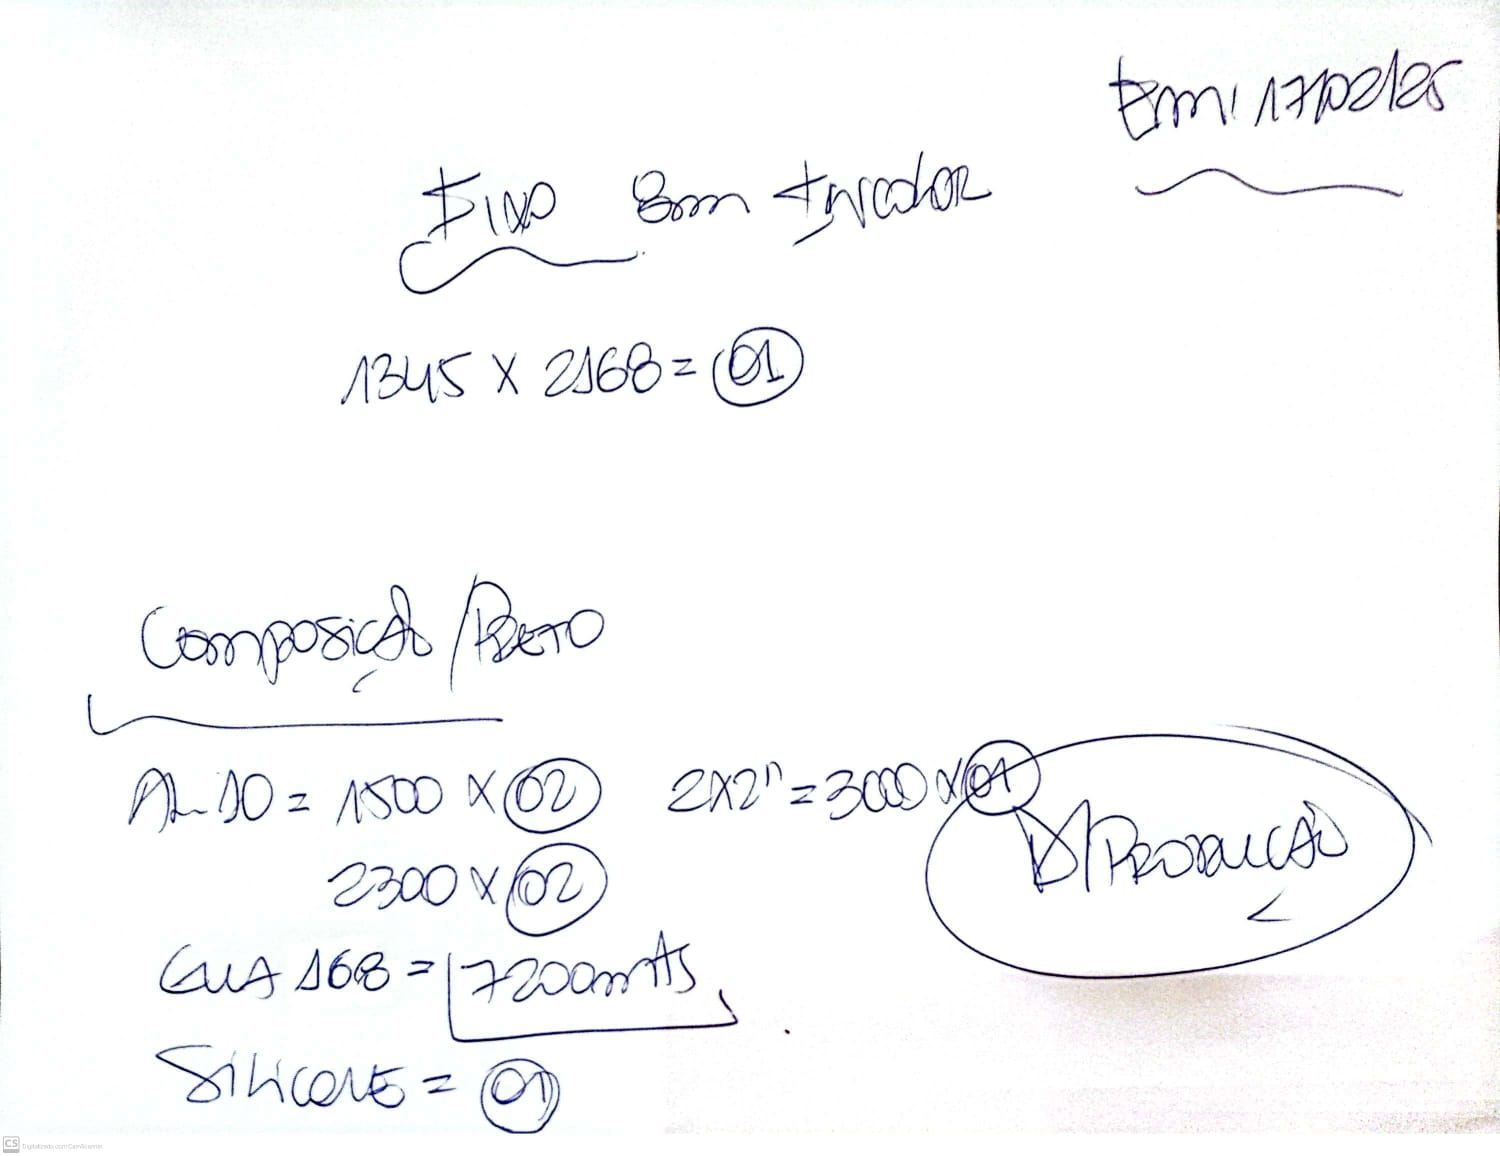 Em: 17/02/25
Fixo 8mm Incolor
1345 X 2168 = 01
Composição / Preto
AL-10 = 1500 X 02 2X2" = 3000 X 01
P/ Produção
2300 X 02
GUA 168 = 7200mts
Silicone = 01
CS Digitalizado com CamScanner